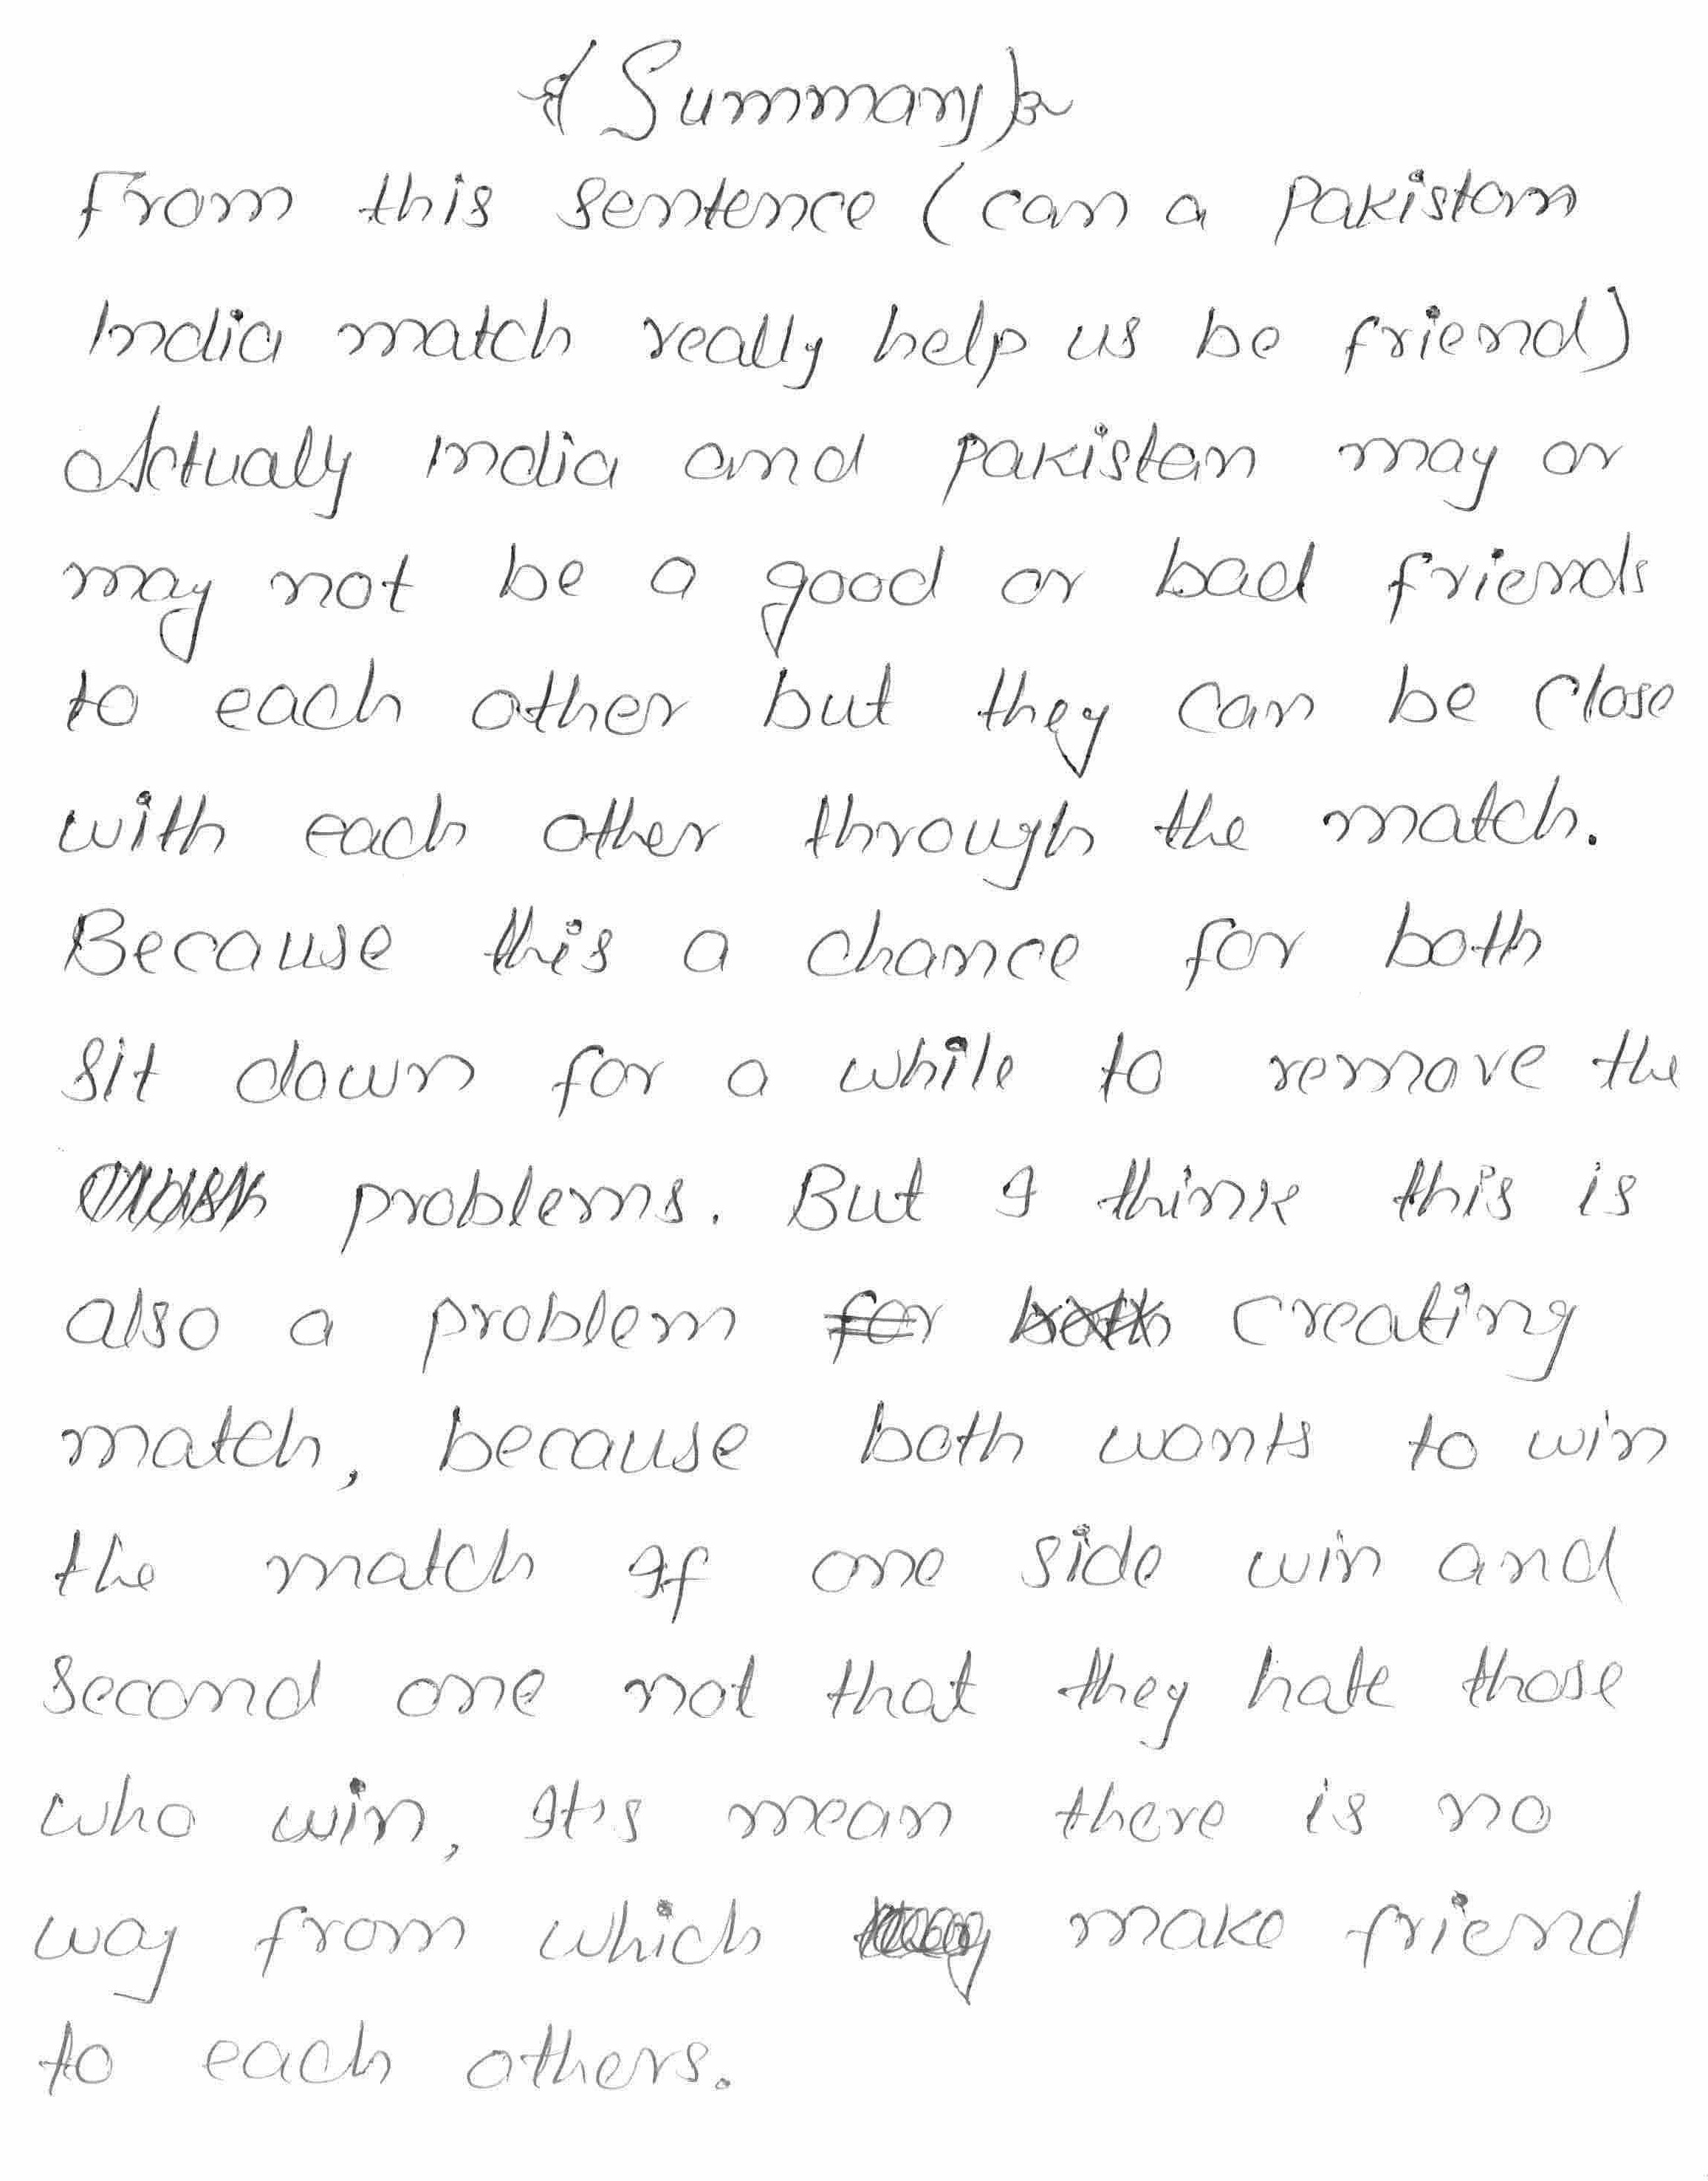 {Summary}
From this sentence (can a Pakistan
India match really help us be friend)
Actualy India and Pakistan may or
may not be a good or bad friends
to each other but they can be close
with each other through the match.
Because this a chance for both
sit down for a while to remove the
problems. But I think this is
also a problem for both creating
match, because both wants to win
the match If one side win and
second one not that they hate those
who win, It's mean there is no
way from which make friend
to each others.